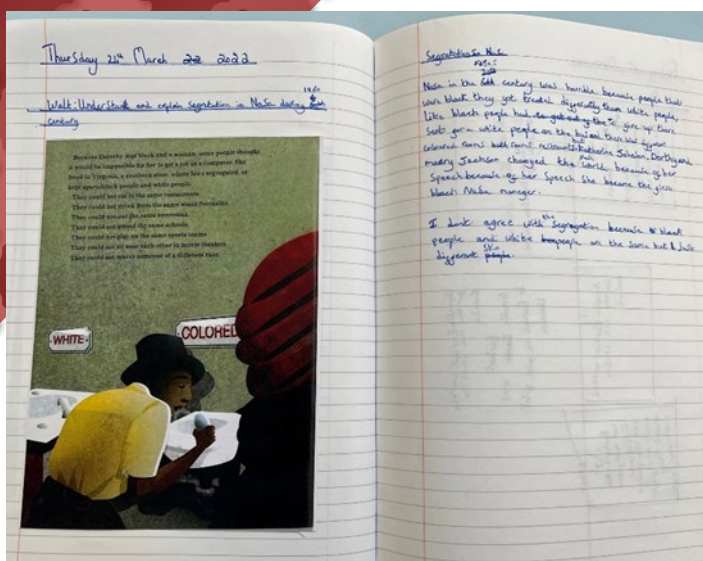 Thursday 24th March 22 2022
1950s
Walt: Understand and explain segregation in Nasa during
century
Because Dorothy was black and a woman, some people thought
it would be impossible for her to get a job as a computer. She
lived in Virginia, a southern state, where laws segregated, or
kept apart, black people and white people.
They could not eat in the same restaurants.
They could not drink from the same water fountains.
They could not use the same restrooms.
They could not attend the same schools.
They could not play on the same sports teams.
They could not sit near each other in movie theaters.
They could not marry someone of a different race.
WHITE
COLORED
Segregation in Nasa
1950s
Nasa in the century was horrible because people that
were black they got treated differently than white people,
Like black people had to give up there
seats for a white people on the bus and there had different
coloured rooms bath rooms restraunts but Katherine Johnson, Dorthy and
marry Jackson changed the world because of her
speech because of her speech she became the first
black Nasa manager.
I dont agree with the segregation because black
people and white people are the same but just
different skin